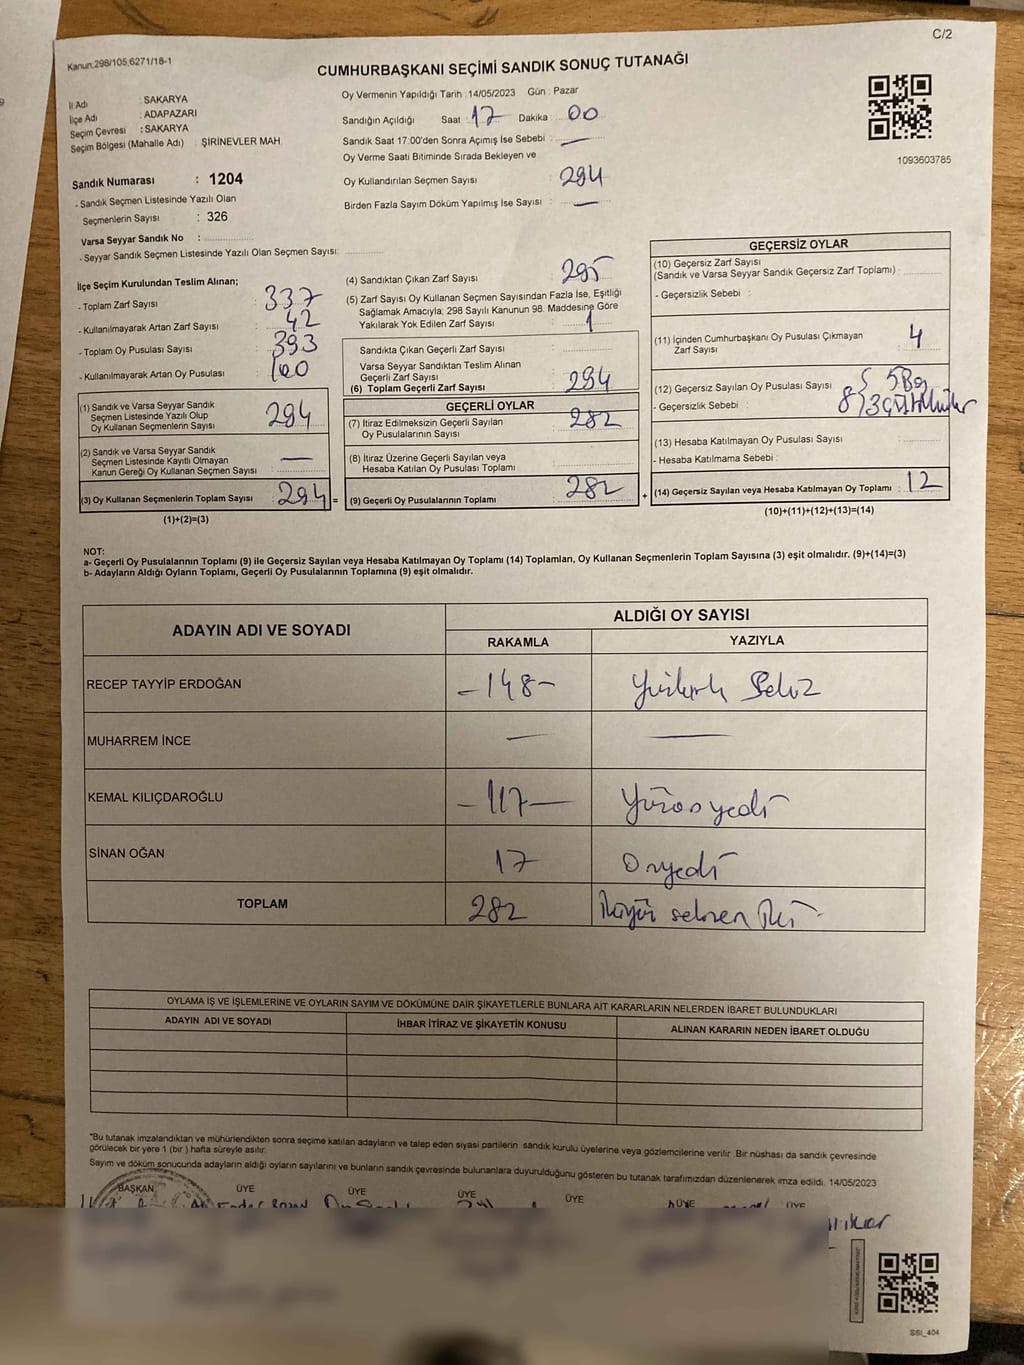 C/2
Kanun:298/105,6271/18-1
CUMHURBAŞKANI SEÇİMİ SANDIK SONUÇ TUTANAĞI
İl Adı : SAKARYA
İlçe Adı : ADAPAZARI
Seçim Çevresi : SAKARYA
Seçim Bölgesi (Mahalle Adı) . ŞİRİNEVLER MAH
Sandık Numarası : 1204
- Sandık Seçmen Listesinde Yazılı Olan
Seçmenlerin Sayısı : 326
Varsa Seyyar Sandık No :
- Seyyar Sandık Seçmen Listesinde Yazılı Olan Seçmen Sayısı:
Oy Vermenin Yapıldığı Tarih : 14/05/2023 Gün : Pazar
Sandığın Açıldığı Saat 17 Dakika 00
Sandık Saat 17:00'den Sonra Açımış İse Sebebi : —
Oy Verme Saati Bitiminde Sırada Bekleyen ve
Oy Kullandırılan Seçmen Sayısı : 294
Birden Fazla Sayım Döküm Yapılmış İse Sayısı : —
1093603785
İlçe Seçim Kurulundan Teslim Alınan;
- Toplam Zarf Sayısı : 337
- Kullanılmayarak Artan Zarf Sayısı : 42
- Toplam Oy Pusulası Sayısı : 393
- Kullanılmayarak Artan Oy Pusulası : 100
(1) Sandık ve Varsa Seyyar Sandık
Seçmen Listesinde Yazılı Olup
Oy Kullanan Seçmenlerin Sayısı : 294
(2) Sandık ve Varsa Seyyar Sandık
Seçmen Listesinde Kayıtlı Olmayan
Kanun Gereği Oy Kullanan Seçmen Sayısı : —
(3) Oy Kullanan Seçmenlerin Toplam Sayısı : 294 =
(1)+(2)=(3)
(4) Sandıktan Çıkan Zarf Sayısı : 295
(5) Zarf Sayısı Oy Kullanan Seçmen Sayısından Fazla İse, Eşitliği
Sağlamak Amacıyla; 298 Sayılı Kanunun 98. Maddesine Göre
Yakılarak Yok Edilen Zarf Sayısı : 1
Sandıkta Çıkan Geçerli Zarf Sayısı :
Varsa Seyyar Sandıktan Teslim Alınan
Geçerli Zarf Sayısı :
(6) Toplam Geçerli Zarf Sayısı : 294
GEÇERLİ OYLAR
(7) İtiraz Edilmeksizin Geçerli Sayılan
Oy Pusulalarının Sayısı : 282
(8) İtiraz Üzerine Geçerli Sayılan veya
Hesaba Katılan Oy Pusulası Toplamı :
(9) Geçerli Oy Pusulalarının Toplamı : 282 +
GEÇERSİZ OYLAR
(10) Geçersiz Zarf Sayısı
(Sandık ve Varsa Seyyar Sandık Geçersiz Zarf Toplamı) :
- Geçersizlik Sebebi :
(11) İçinden Cumhurbaşkanı Oy Pusulası Çıkmayan
Zarf Sayısı : 4
(12) Geçersiz Sayılan Oy Pusulası Sayısı :
- Geçersizlik Sebebi : 8
(13) Hesaba Katılmayan Oy Pusulası Sayısı :
- Hesaba Katılmama Sebebi :
(14) Geçersiz Sayılan veya Hesaba Katılmayan Oy Toplamı : 12
(10)+(11)+(12)+(13)=(14)
NOT:
a- Geçerli Oy Pusulalarının Toplamı (9) ile Geçersiz Sayılan veya Hesaba Katılmayan Oy Toplamı (14) Toplamları, Oy Kullanan Seçmenlerin Toplam Sayısına (3) eşit olmalıdır. (9)+(14)=(3)
b- Adayların Aldığı Oyların Toplamı, Geçerli Oy Pusulalarının Toplamına (9) eşit olmalıdır.
ADAYIN ADI VE SOYADI
ALDIĞI OY SAYISI
RAKAMLA YAZIYLA
RECEP TAYYİP ERDOĞAN -148- Yüzkırk Sekiz
MUHARREM İNCE — —
KEMAL KILIÇDAROĞLU -117- Yüzonyedi
SİNAN OĞAN 17 Onyedi
TOPLAM 282 İkiyüz seksen iki
OYLAMA İŞ VE İŞLEMLERİNE VE OYLARIN SAYIM VE DÖKÜMÜNE DAİR ŞİKAYETLERLE BUNLARA AİT KARARLARIN NELERDEN İBARET BULUNDUKLARI
ADAYIN ADI VE SOYADI İHBAR İTİRAZ VE ŞİKAYETİN KONUSU ALINAN KARARIN NEDEN İBARET OLDUĞU
*Bu tutanak imzalandıktan ve mühürlendikten sonra seçime katılan adayların ve talep eden siyasi partilerin sandık kurulu üyelerine veya gözlemcilerine verilir .Bir nüshası da sandık çevresinde
görülecek bir yere 1 (bir ) hafta süreyle asılır.
Sayım ve döküm sonucunda adayların aldığı oyların sayılarını ve bunların sandık çevresinde bulunanlara duyurulduğunu gösteren bu tutanak tarafımızdan düzenlenerek imza edildi. 14/05/2023
BAŞKAN ÜYE ÜYE ÜYE ÜYE ÜYE ÜYE
SSI_404